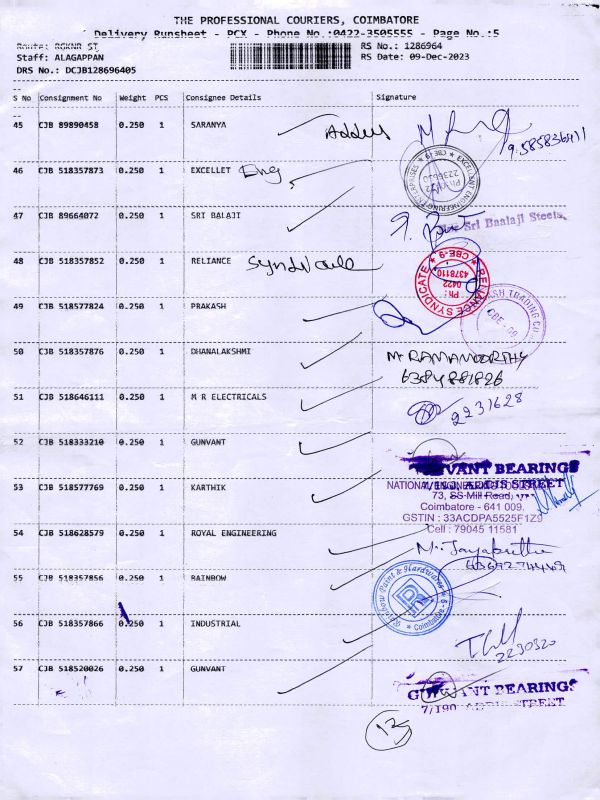 THE PROFESSIONAL COURIERS, COIMBATORE
Delivery Runsheet - PCX - Phone No.:0422-3505555 - Page No.:5
Route: RGKNR ST RS No.: 1286964
Staff: ALAGAPPAN RS Date: 09-Dec-2023
DRS No.: DCJB128696405
S No Consignment No Weight PCS Consignee Details Signature
45 CJB 89890458 0.250 1 SARANYA Address
46 CJB 518357873 0.250 1 EXCELLET Eng
EXCELLANT ENGINEERING ENTERPRISES ★ CBE-19 ★
47 CJB 89664072 0.250 1 SRI BALAJI
Sri Baalaji Steels
48 CJB 518357852 0.250 1 RELIANCE Syndicate
RELIANCE SYNDICATE ★ CBE-9 ★
Ph : 0422 4378110
49 CJB 518577824 0.250 1 PRAKASH
ASH TRADING CO. CBE - 09
50 CJB 518357876 0.250 1 DHANALAKSHMI M RAMAMOORTHY
6384881826
51 CJB 518646111 0.250 1 M R ELECTRICALS 2231628
52 CJB 518333210 0.250 1 GUNVANT
GUNVANT BEARINGS
53 CJB 518577769 0.250 1 KARTHIK
73, SS Mill Road,
Coimbatore - 641 009.
GSTIN : 33ACDPA5525F1Z9
Cell : 79045 11581
54 CJB 518628579 0.250 1 ROYAL ENGINEERING
55 CJB 518357856 0.250 1 RAINBOW
Rainbow Paint & Hardwares ★ Coimbatore - 9 ★
56 CJB 518357866 0.250 1 INDUSTRIAL
2230320
57 CJB 518520026 0.250 1 GUNVANT
GUNVANT BEARINGS
7/190
13